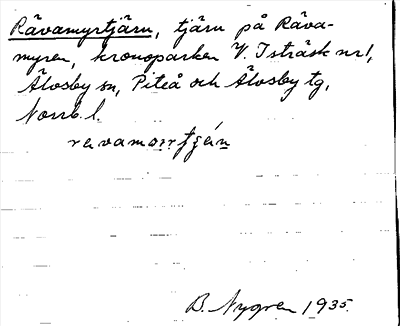 Rävamyrtjärn, tjärn på Räva-
myren, kronoparken V. Isträsk nr 1,
Älvsby sn, Piteå och Älvsby tg,
Norrb. l.
rävamorrtjän
B. Nygren 1935.